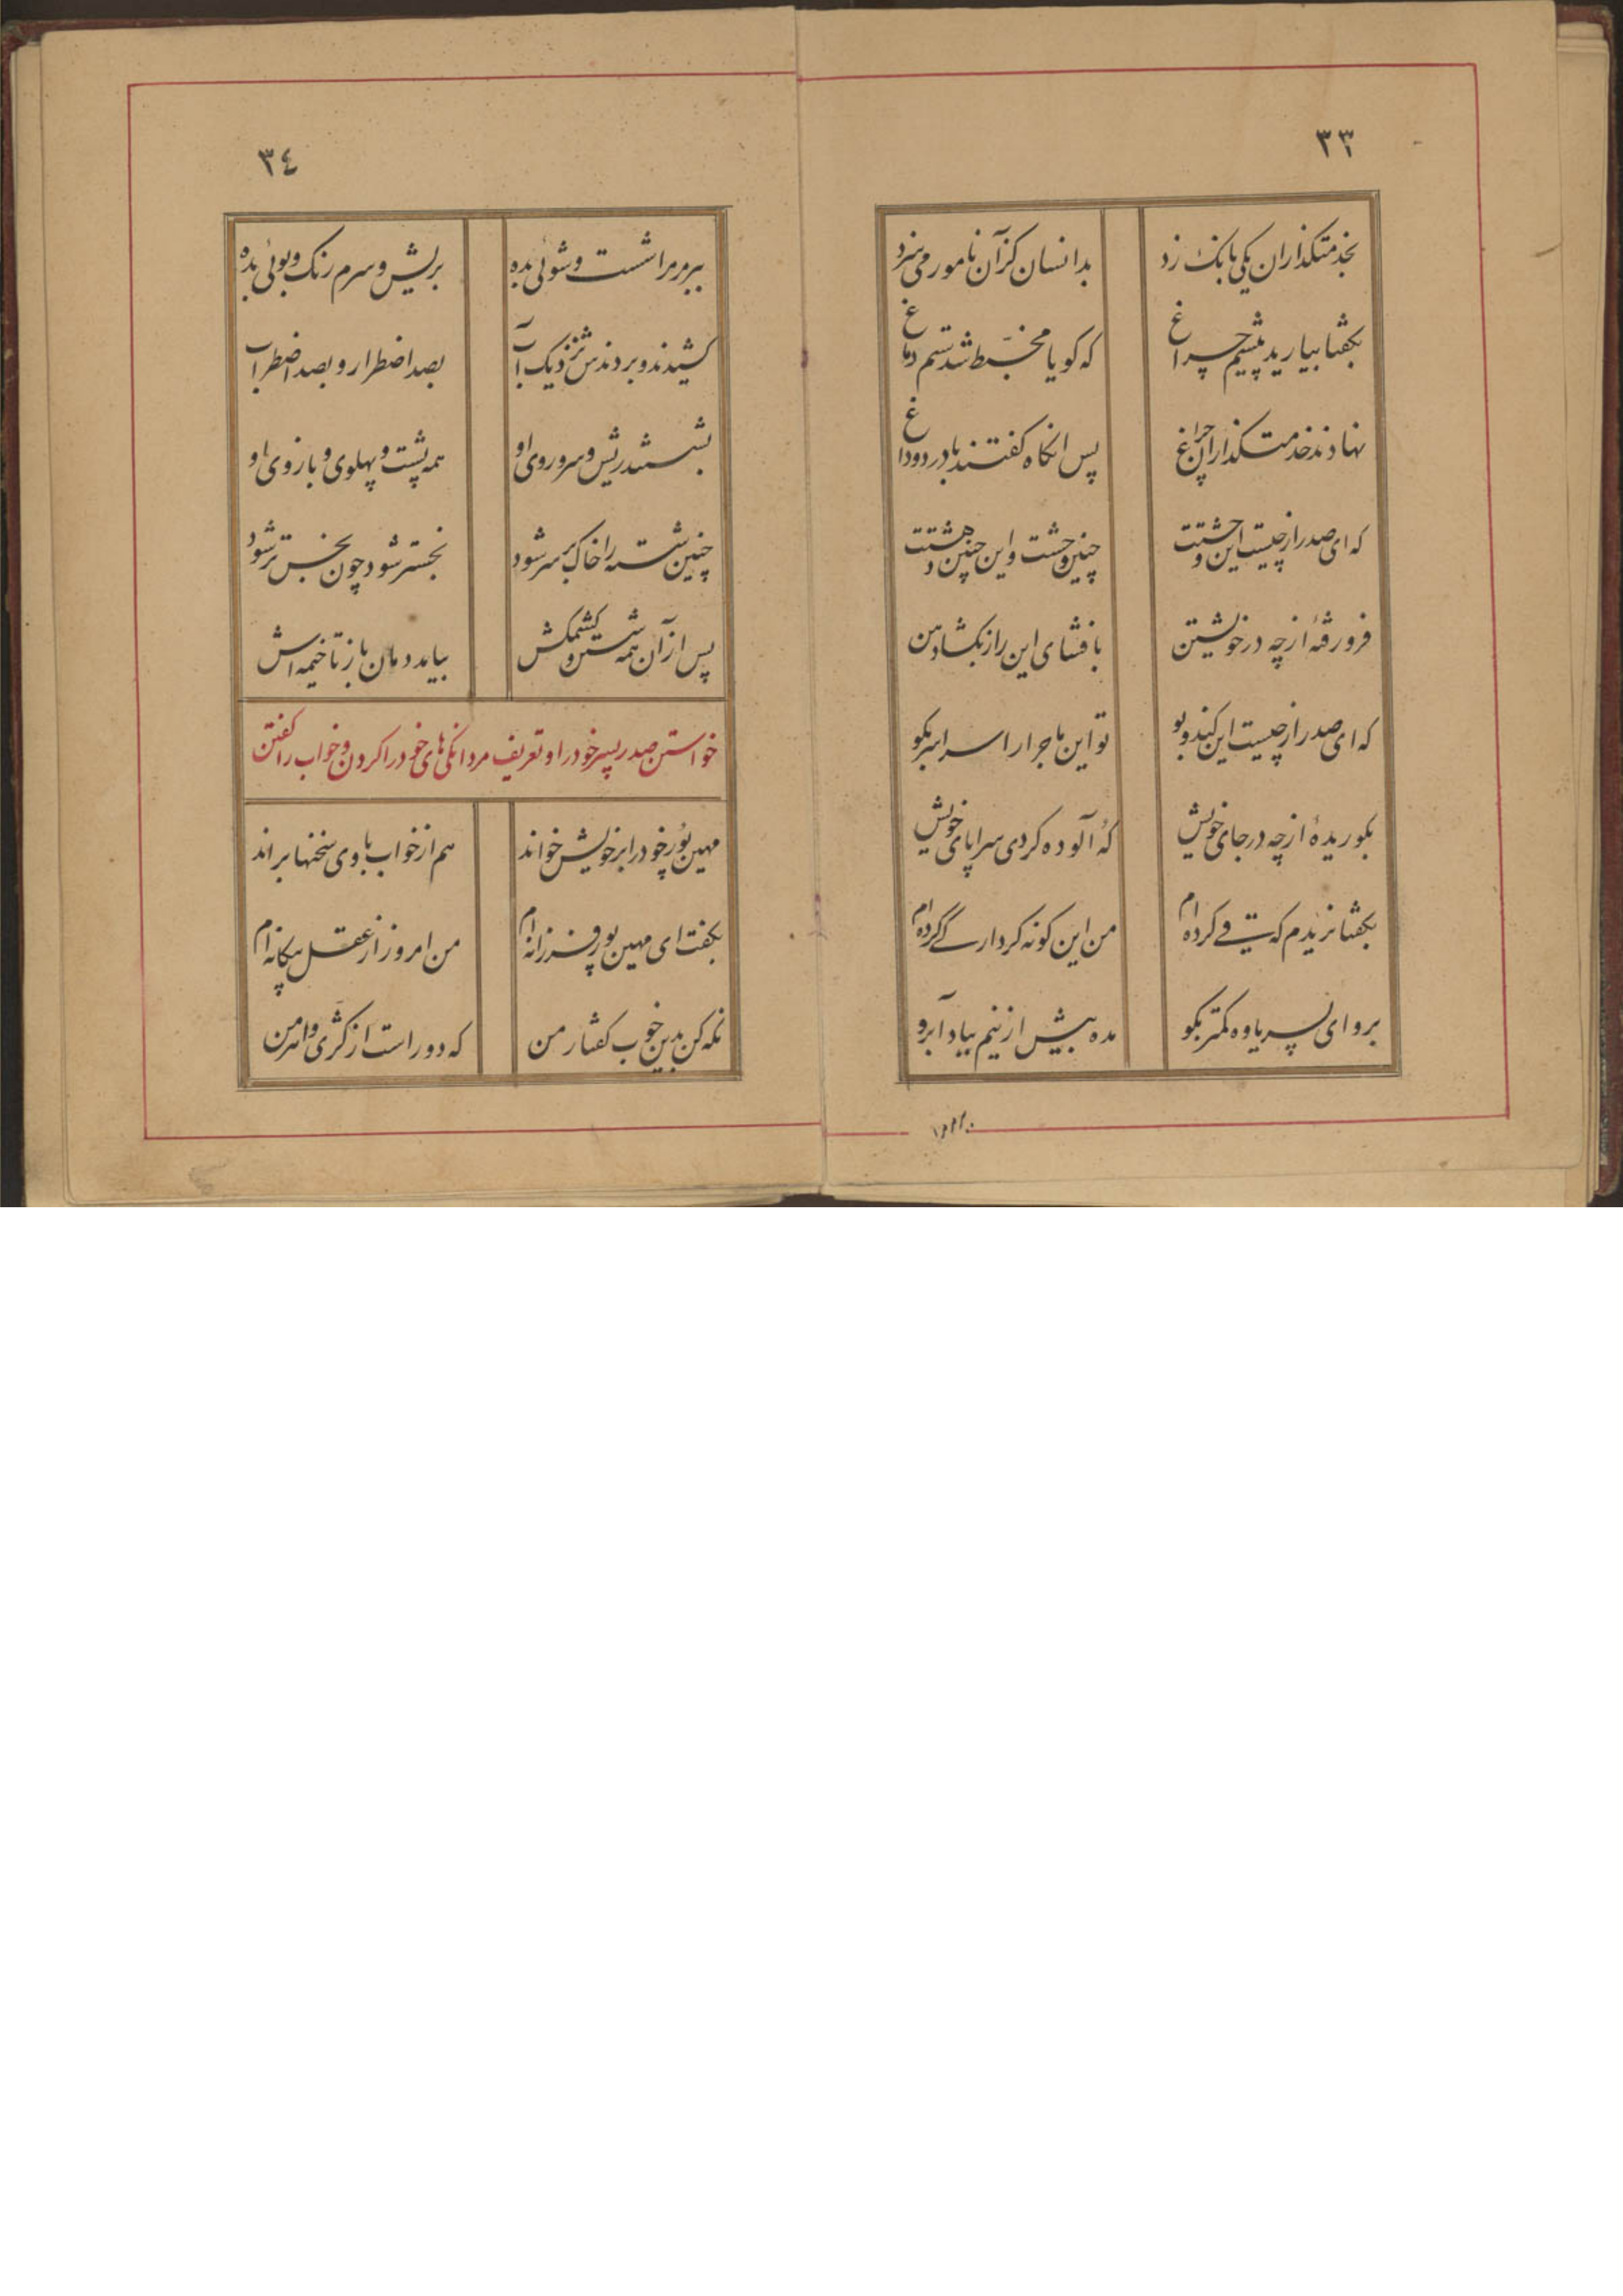 ٣٣
بخدمتکذاران یکی بانک زد
بدانسان کزآن نامور می‌سزد
بکفتا بیارید پیشم چراغ
که کویا مخبط شدستم دماغ
نهادند خدمتکذاران چراغ
پس انکاه کفتند با درد و داغ
که ای صدر از چیست این وحشتت
چنین وحشت و این چنین دهشتت
فرو رفتهٔ از چه در خویشتن
بافشای این راز بکشا دهن
که ای صدر از چیست این کند و بو
تو این ماجرا را سراسر بکو
بکو ریدهٔ از چه در جای خویش
کهٔ آلوده کردی سراپای خویش
بکفتا نریدم که قی کرده‌ام
من این کونه کردار کی کرده‌ام
برو ای پسر یاوه کمتر بکو
مده بیش ازینم بباد آبرو
٣٤
ببر مر مرا شست و شوئی بده
بریش و سرم رنک و بوئی بده
کشیدند و بردندش نزدیک آب
بصد اضطرار و بصد اضطراب
بشستند ریش و سر و روی او
همه پشت و پهلوی و بازوی او
چنین شسته را خاک بر سر شود
نجستر شود چون نجس تر شود
پس از آن همه شستن و کشمکش
بیامد دمان باز تا خیمه‌اش
خواستن صدر پسر خود را و تعریف مردانکی‌های خود را کردن و خواب را کفتن
مهین پور خود را بر خویش خواند
هم از خواب با وی سخنها براند
بکفت ای مهین پور فرزانه‌ام
من امروز از عقل بیکانه‌ام
نکه کن بدین خوب کفتار من
که دور است از کژی و